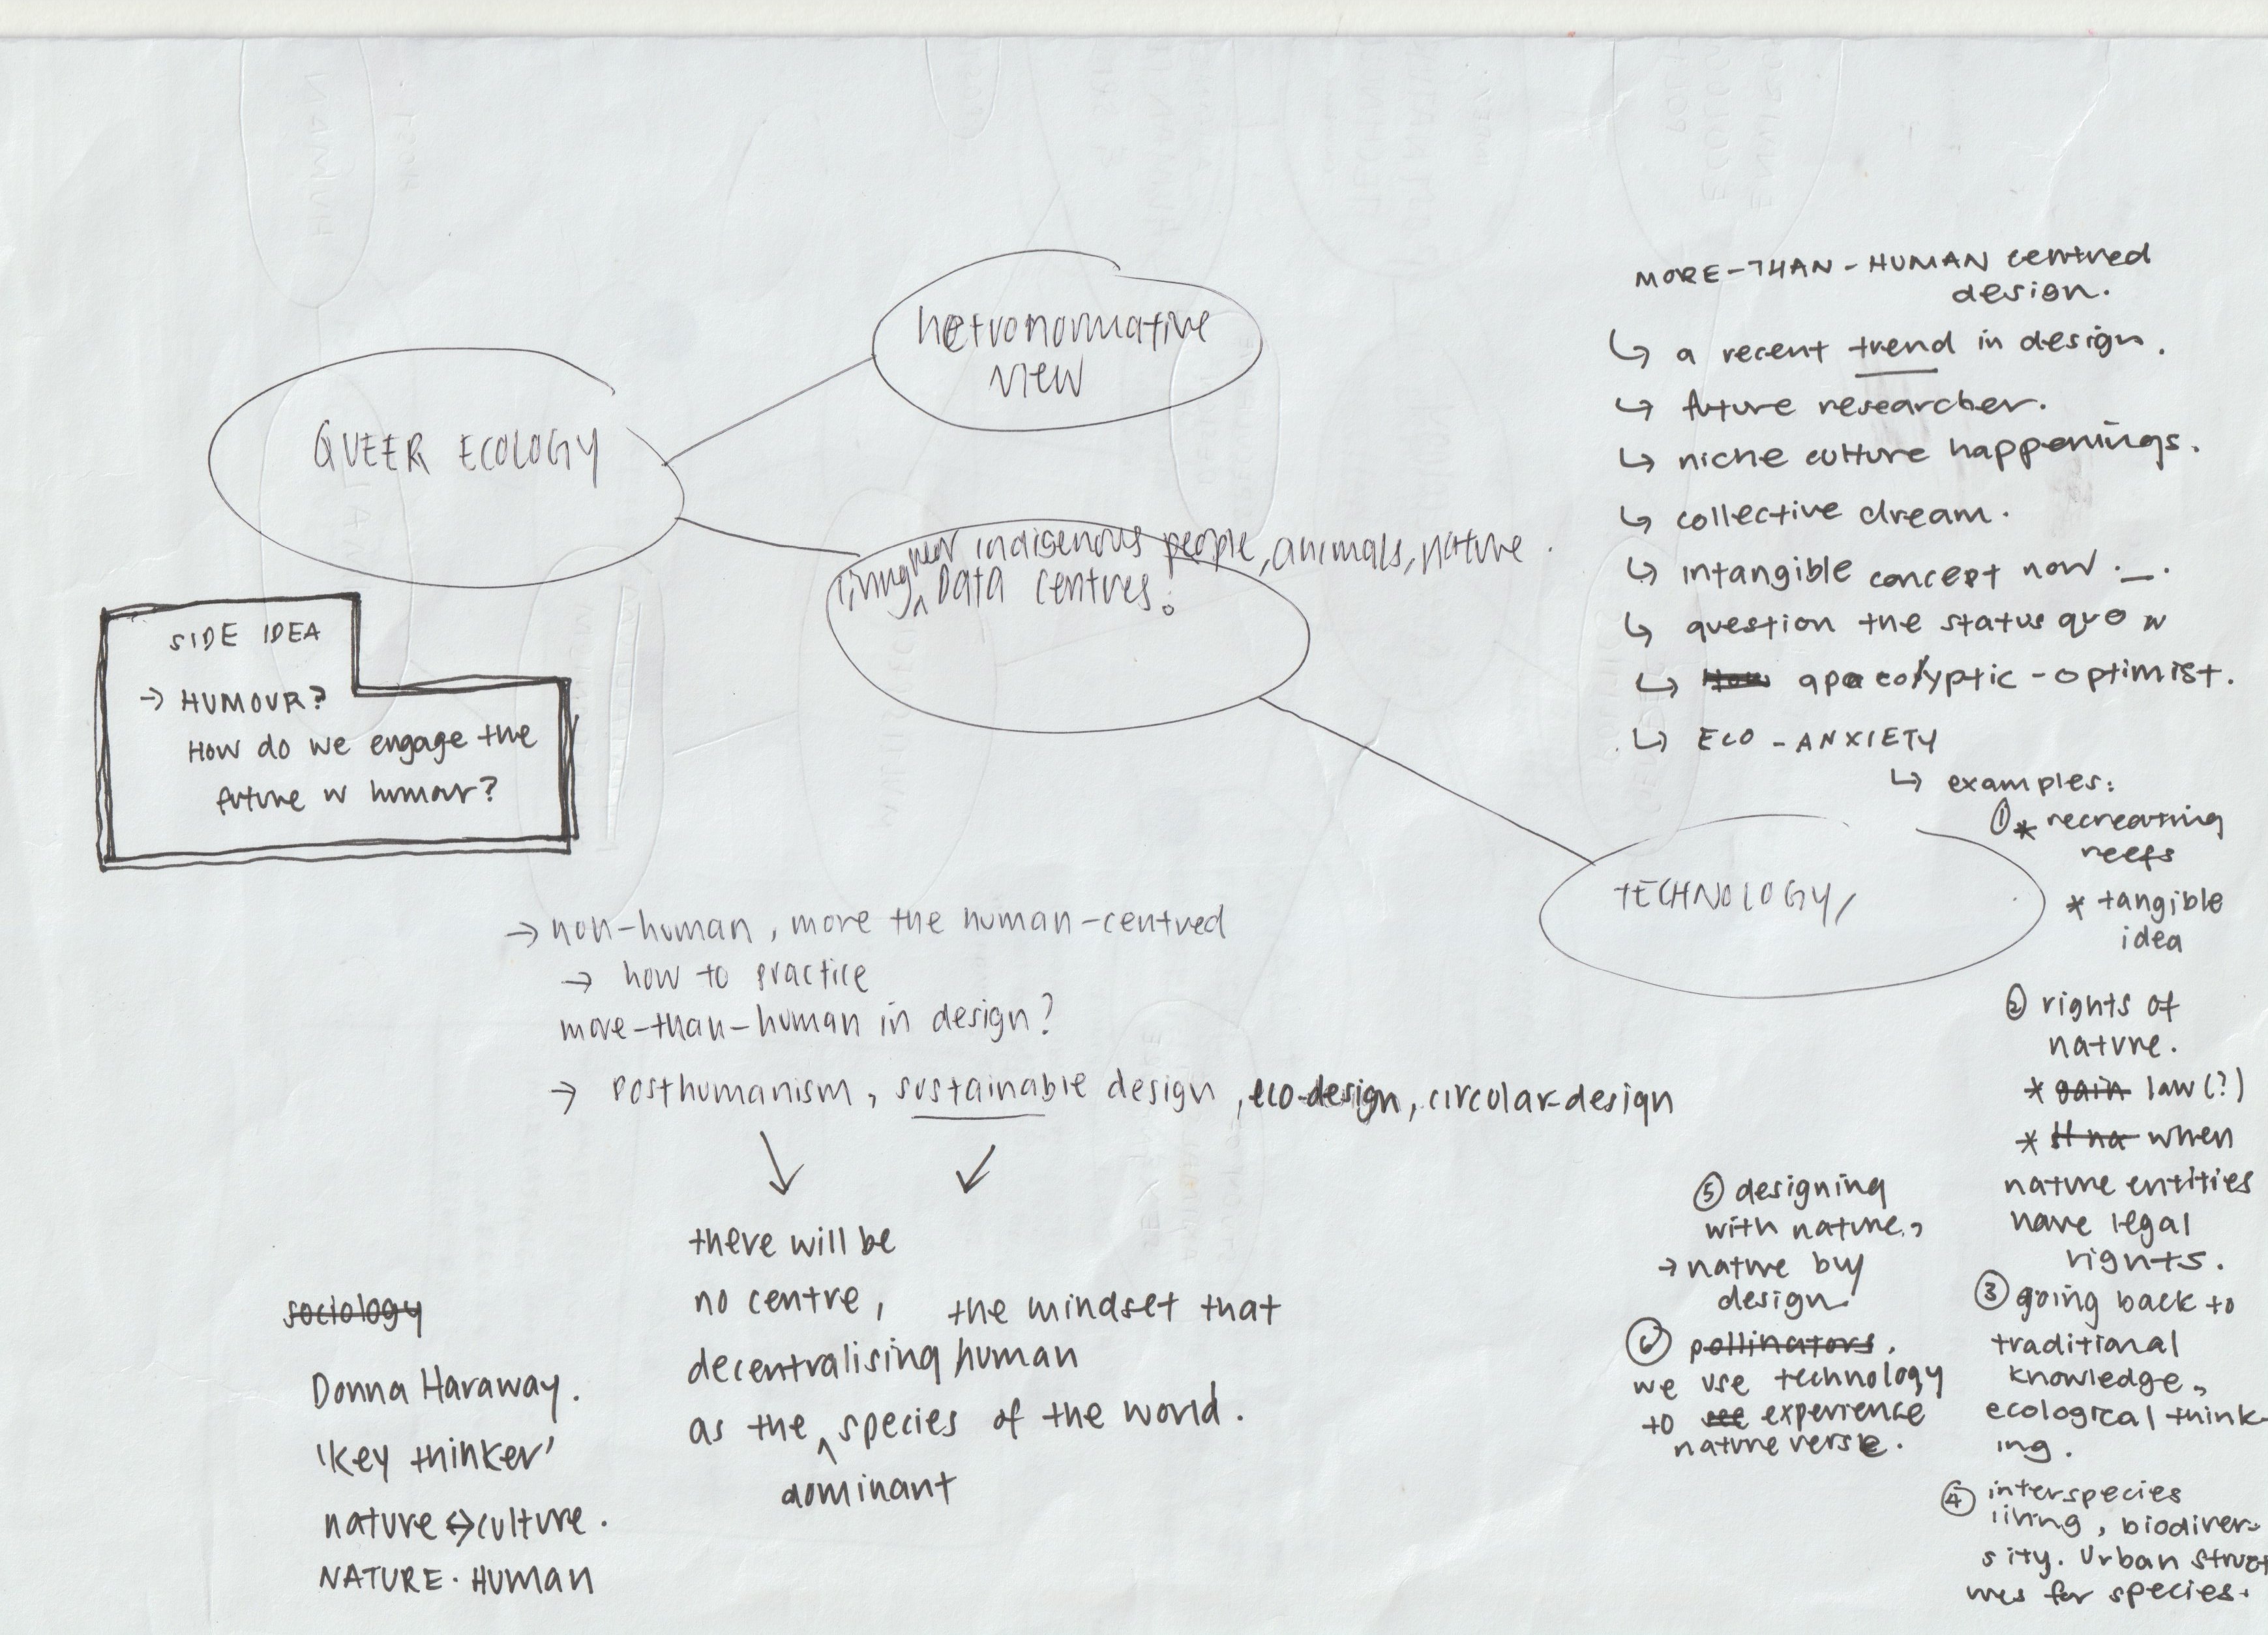 QUEER ECOLOGY
hetronormative
view
near indigenous people, animals, nature.
living ^ Data centres.
TECHNOLOGY,
SIDE IDEA
→ HUMOUR?
How do we engage the
future w humour?
→ non-human, more the human-centred
→ how to practice
more-than-human in design?
→ Posthumanism, sustainable design, eco-design, circular design
there will be
no centre,
decentralising human
as the ^ species of the world.
dominant
the mindset that
sociology
Donna Haraway.
'key thinker'
nature ↔ culture.
NATURE. HUMAN
MORE-THAN-HUMAN centred
design.
↳ a recent trend in design.
↳ future researcher.
↳ niche culture happenings.
↳ collective dream.
↳ intangible concept now ._.
↳ question the status quo
↳ apacolyptic-optimist.
↳ ECO-ANXIETY
↳ examples:
① * recreating
reefs
* tangible
idea
② rights of
nature.
* gain law(?)
* when
nature entities
have legal
rights.
③ going back to
traditional
knowledge,
ecological think-
ing.
④ interspecies
living, biodiver-
sity. Urban struct
ures for species.
⑤ designing
with nature,
→ nature buy
design.
⑥ pollinators.
we use technology
to see experience
nature verse.